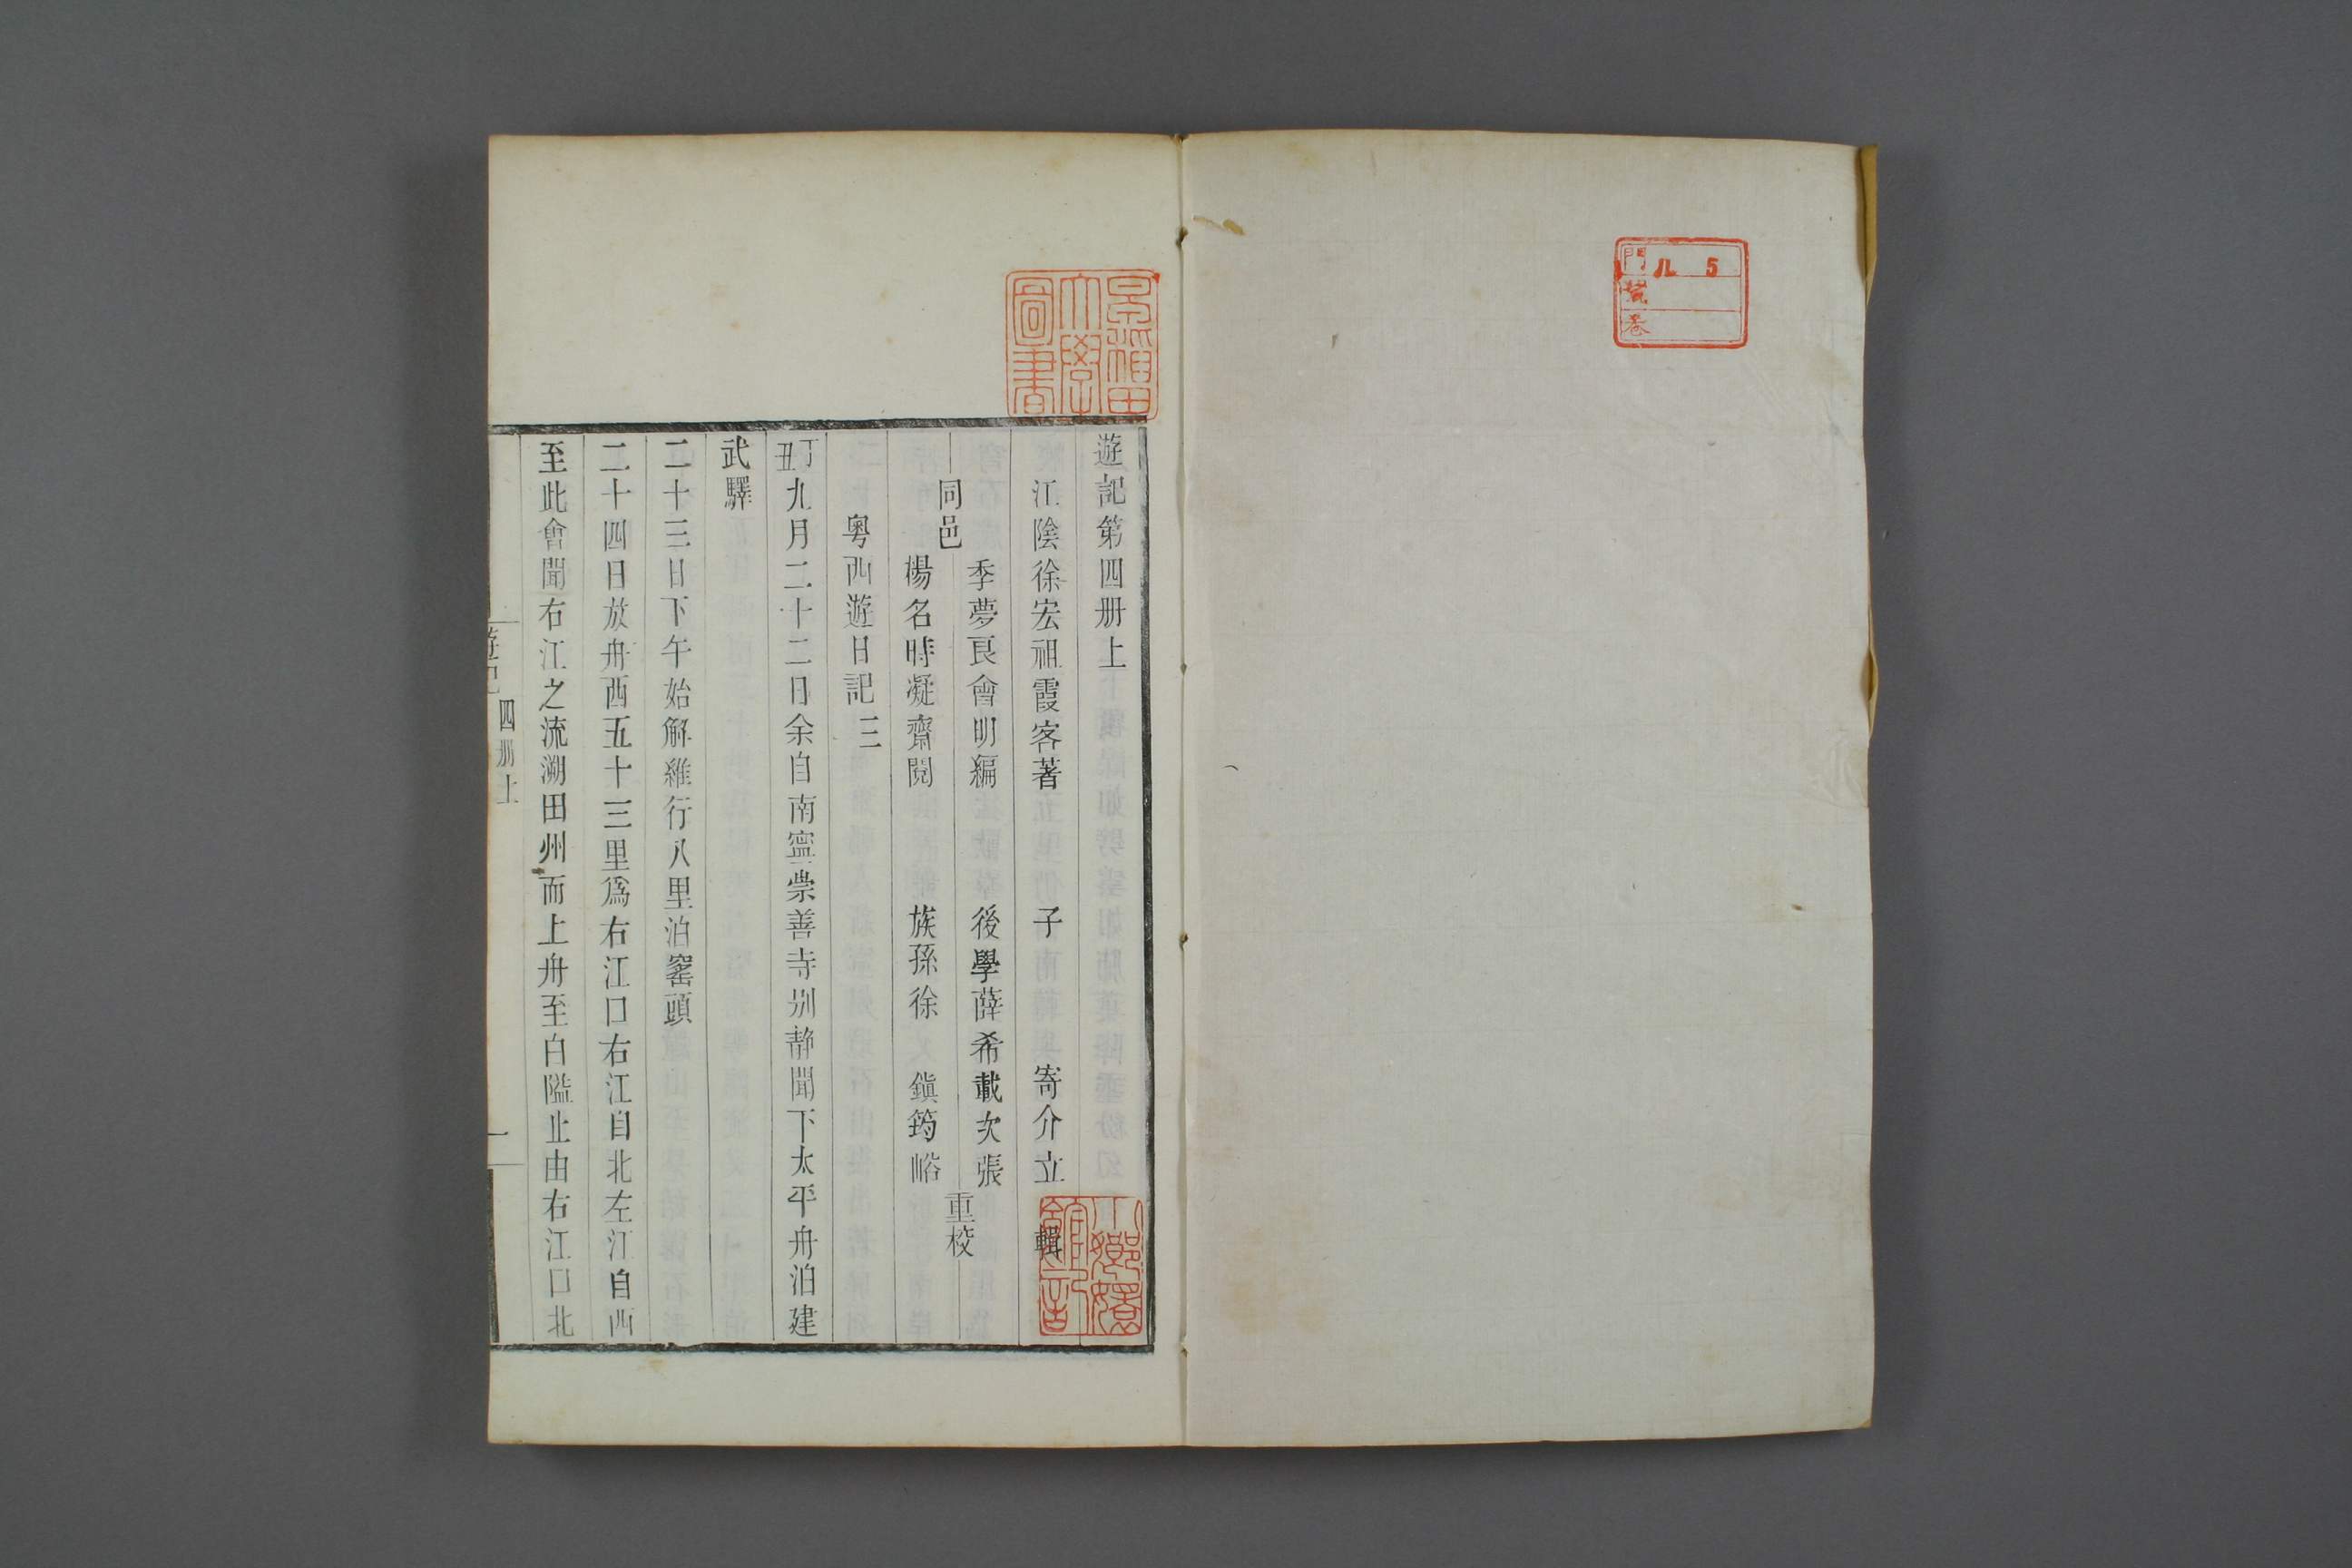 門 ル 5
號
卷
早稻田
大學
圖書
遊記第四册上
江陰徐宏祖霞客著 子 寄介立 輯
同邑
季夢良會明編 後學薛希載次張
楊名時凝齋閱 族孫徐 鎮筠峪
重校
粤西遊日記三
丁丑九月二十二日余自南寧崇善寺别靜聞下太平舟泊建
武驛
二十三日下午始解維行八里泊窰頭
二十四日放舟西五十三里爲右江口右江自北左江自西
至此會聞右江之流溯田州而上舟至白隘止由右江口北
遊記 四册上 一